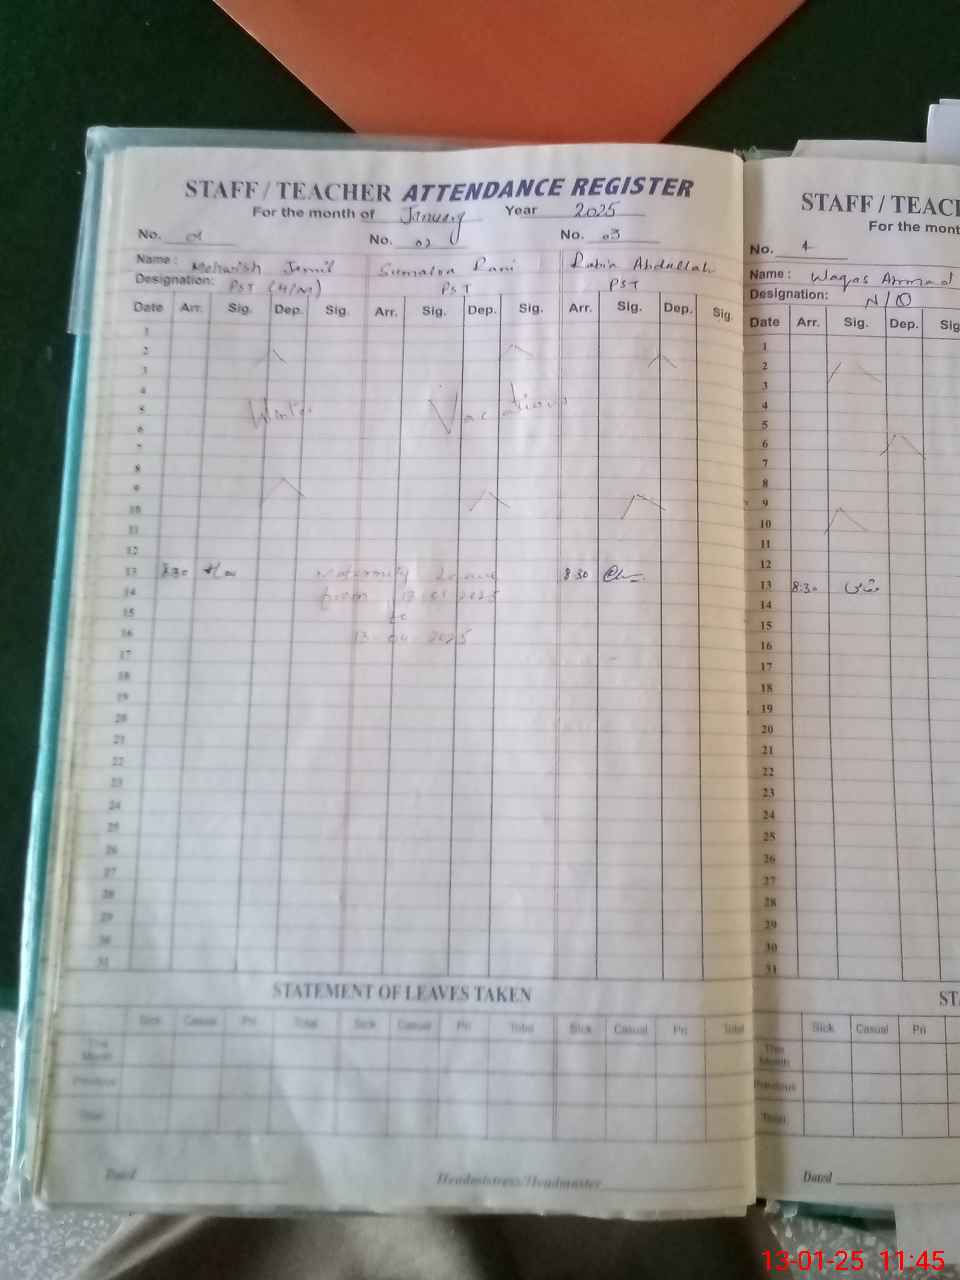 STAFF / TEACHER ATTENDANCE REGISTER
For the month of January Year 2025
No. 01 No. 02 No. 03
Name: Mehwish Jamil Sumaira Rani Rabia Abdullah
Designation: PST (H/M) PST PST
Date Arr. Sig. Dep. Sig. Arr. Sig. Dep. Sig. Arr. Sig. Dep. Sig.
1
2
3
4
5 Winter Vacations
6
7
8
9
10
11
12
13 8:30 Maternity Leave 8:30
14 from 13.01.2025
15 to
16 13.04.2025
17
18
19
20
21
22
23
24
25
26
27
28
29
30
31
STATEMENT OF LEAVES TAKEN
Sick Casual Pri Total Sick Casual Pri Total Sick Casual Pri Total
This Month
Previous
Total
Dated Headmistress/Headmaster
STAFF / TEAC
For the mont
No. 4
Name: Waqas Ahmad
Designation: N/Q
Date Arr. Sig. Dep. Sig
1
2
3
4
5
6
7
8
9
10
11
12
13 8:30
14
15
16
17
18
19
20
21
22
23
24
25
26
27
28
29
30
31
ST
Sick Casual Pri
This Month
Previous
Total
Dated
13-01-25 11:45